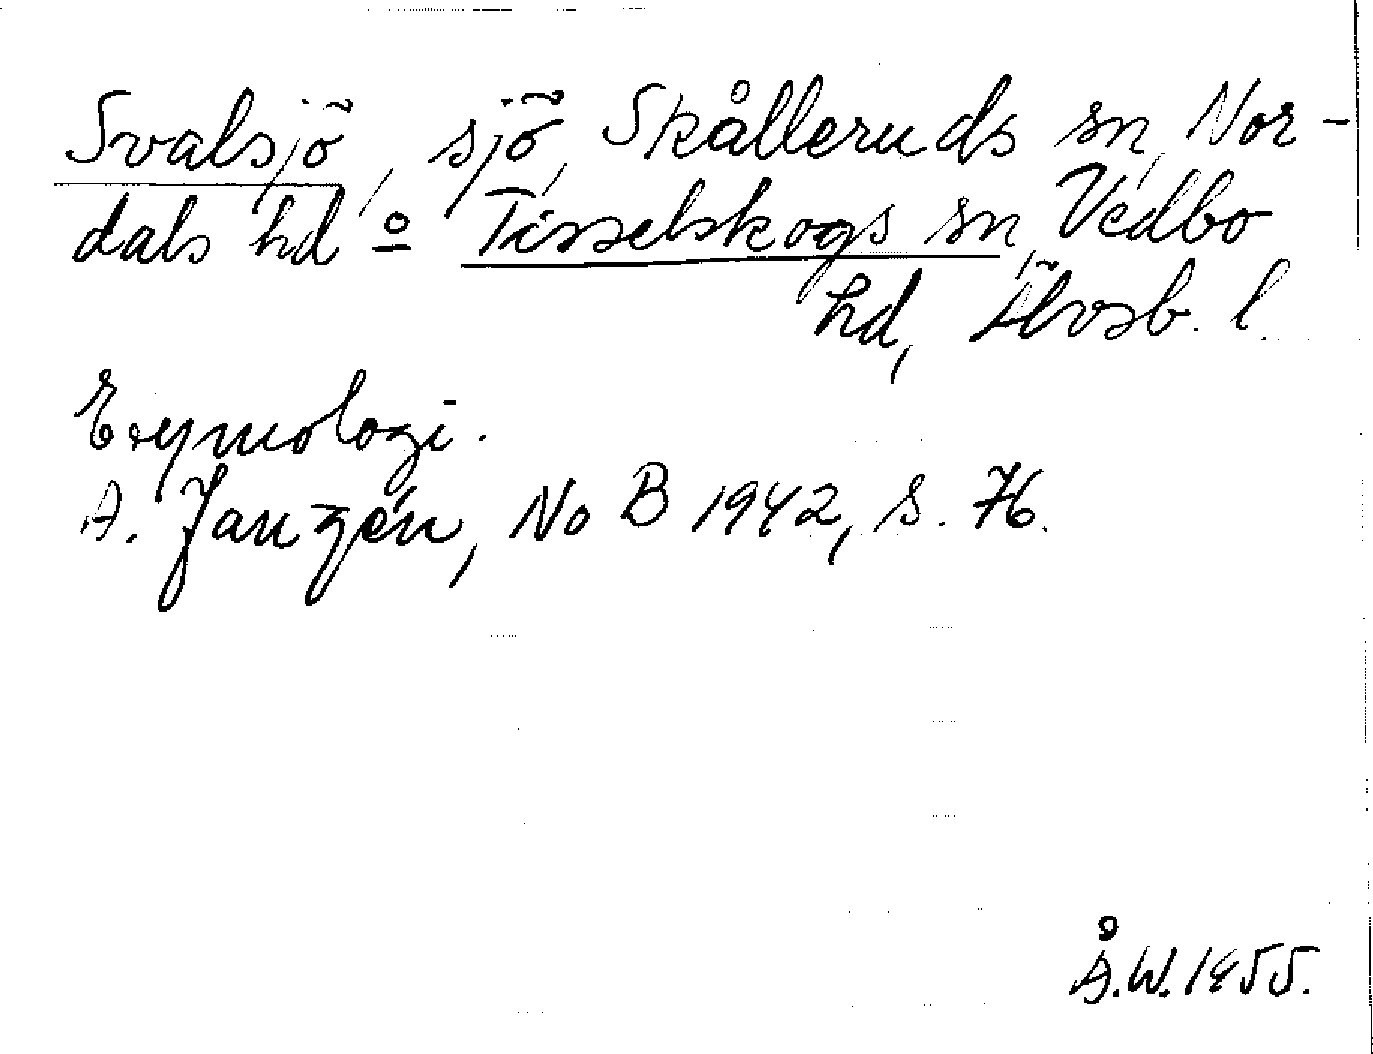 Svalsjö, sjö, Skålleruds sn, Nor-
dals hd o Tisselskogs sn, Vedbo
hd, Älvsb. l.
Etymologi.
A. Janzén, NoB 1942, s. 76.
Å.W. 1955.